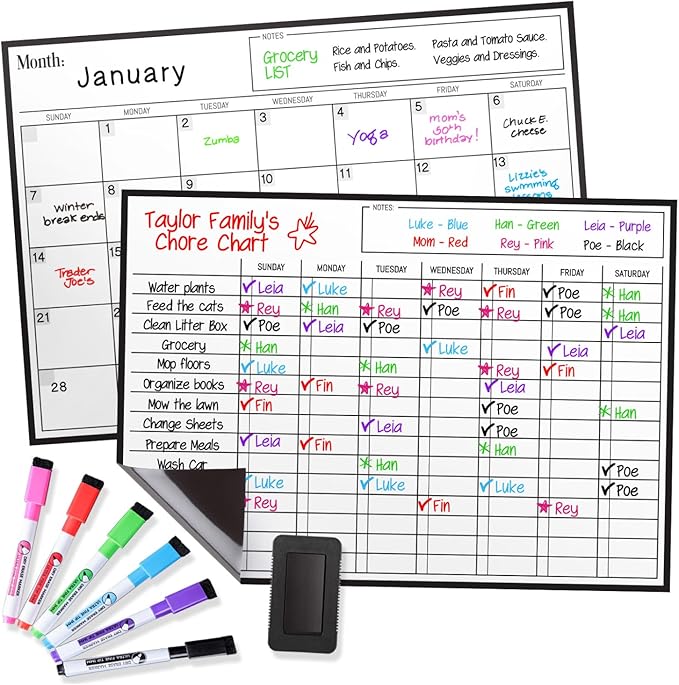 Month: January
NOTES
Grocery LIST
Rice and Potatoes.
Fish and Chips.
Pasta and Tomato Sauce.
Veggies and Dressings.
SUNDAY MONDAY TUESDAY WEDNESDAY THURSDAY FRIDAY SATURDAY
1 2 3 4 5 6
Zumba
Yoga
mom's
50th
birthday!
Chuck E.
cheese
7 8 13
Winter
break ends
Lizzie's
swimming
lessons
14
Trader
Joe's
21
28
Taylor Family's
Chore Chart
NOTES:
Luke - Blue Han - Green Leia - Purple
Mom - Red Rey - Pink Poe - Black
SUNDAY MONDAY TUESDAY WEDNESDAY THURSDAY FRIDAY SATURDAY
Water plants Leia Luke Rey Fin Poe Han
Feed the cats Rey Han Rey Poe Rey Poe Han
Clean Litter Box Poe Leia Poe Leia
Grocery Han Luke Leia
Mop floors Luke Han Rey Fin
Organize books Rey Fin Rey Leia
Mow the lawn Fin Poe Han
Change Sheets Leia Poe
Prepare Meals Leia Fin Han
Wash Car Han Poe
Luke Luke Luke Poe
Rey Fin Rey
DRY ERASE MARKER
ULTRA FINE TIP 1MM